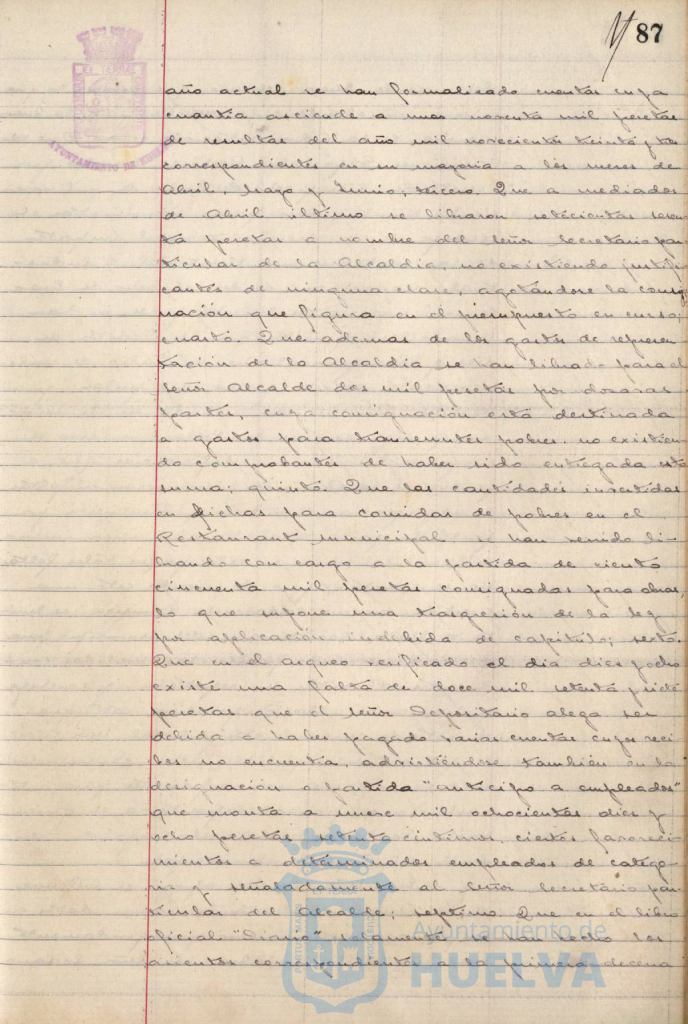 87
AYUNTAMIENTO DE HUELVA
año actual se han formalizado cuentas cuya
cuantía asciende a unas noventa mil pesetas
de resultas del año mil novecientos treinta y tres
correspondientes en su mayoria a los meses de
Abril, Mayo y Junio; tercero. Que a mediados
de Abril último se libraron setecientas seten
ta pesetas a nombre del señor Secretario par
ticular de la Alcaldia, no existiendo justifi
cantes de ninguna clase, agotándose la consig
nación que figura en el presupuesto en curso;
cuarto. Que ademas de los gastos de represen
tación de la Alcaldía se han librado para el
señor Alcalde dos mil pesetas por dozavas
partes, cuya consignación está destinada
a gastos para transeuntes pobres no existien
do comprobantes de haber sido entregada esta
suma; quinto. Que las cantidades invertidas
en fichas para comidas de pobres en el
Restaurant municipal se han venido li-
brando con cargo a la partida de ciento
cincuenta mil pesetas consignadas para obras,
lo que supone una trasgresión de la ley
por aplicación indebida de capítulo; sexto.
Que en el arqueo verificado el dia diez y ocho
existe una falta de doce mil setenta y siete
pesetas que el señor Depositario alega ser
debida a haber pagado varias cuentas cuyos reci
bos no encuentra, advirtiéndose también en la
designación o partida "anticipo a empleados"
que monta a nueve mil ochocientas diez y
ocho pesetas setenta centimos, ciertos favoreci
mientos a determinados empleados de catego-
ria y señaladamente al señor Secretario par
ticular del Alcalde; septimo. Que en el libro
oficial "Diario" solamente se han hecho los
asientos correspondientes a la primera decena
Ayuntamiento de
HUELVA